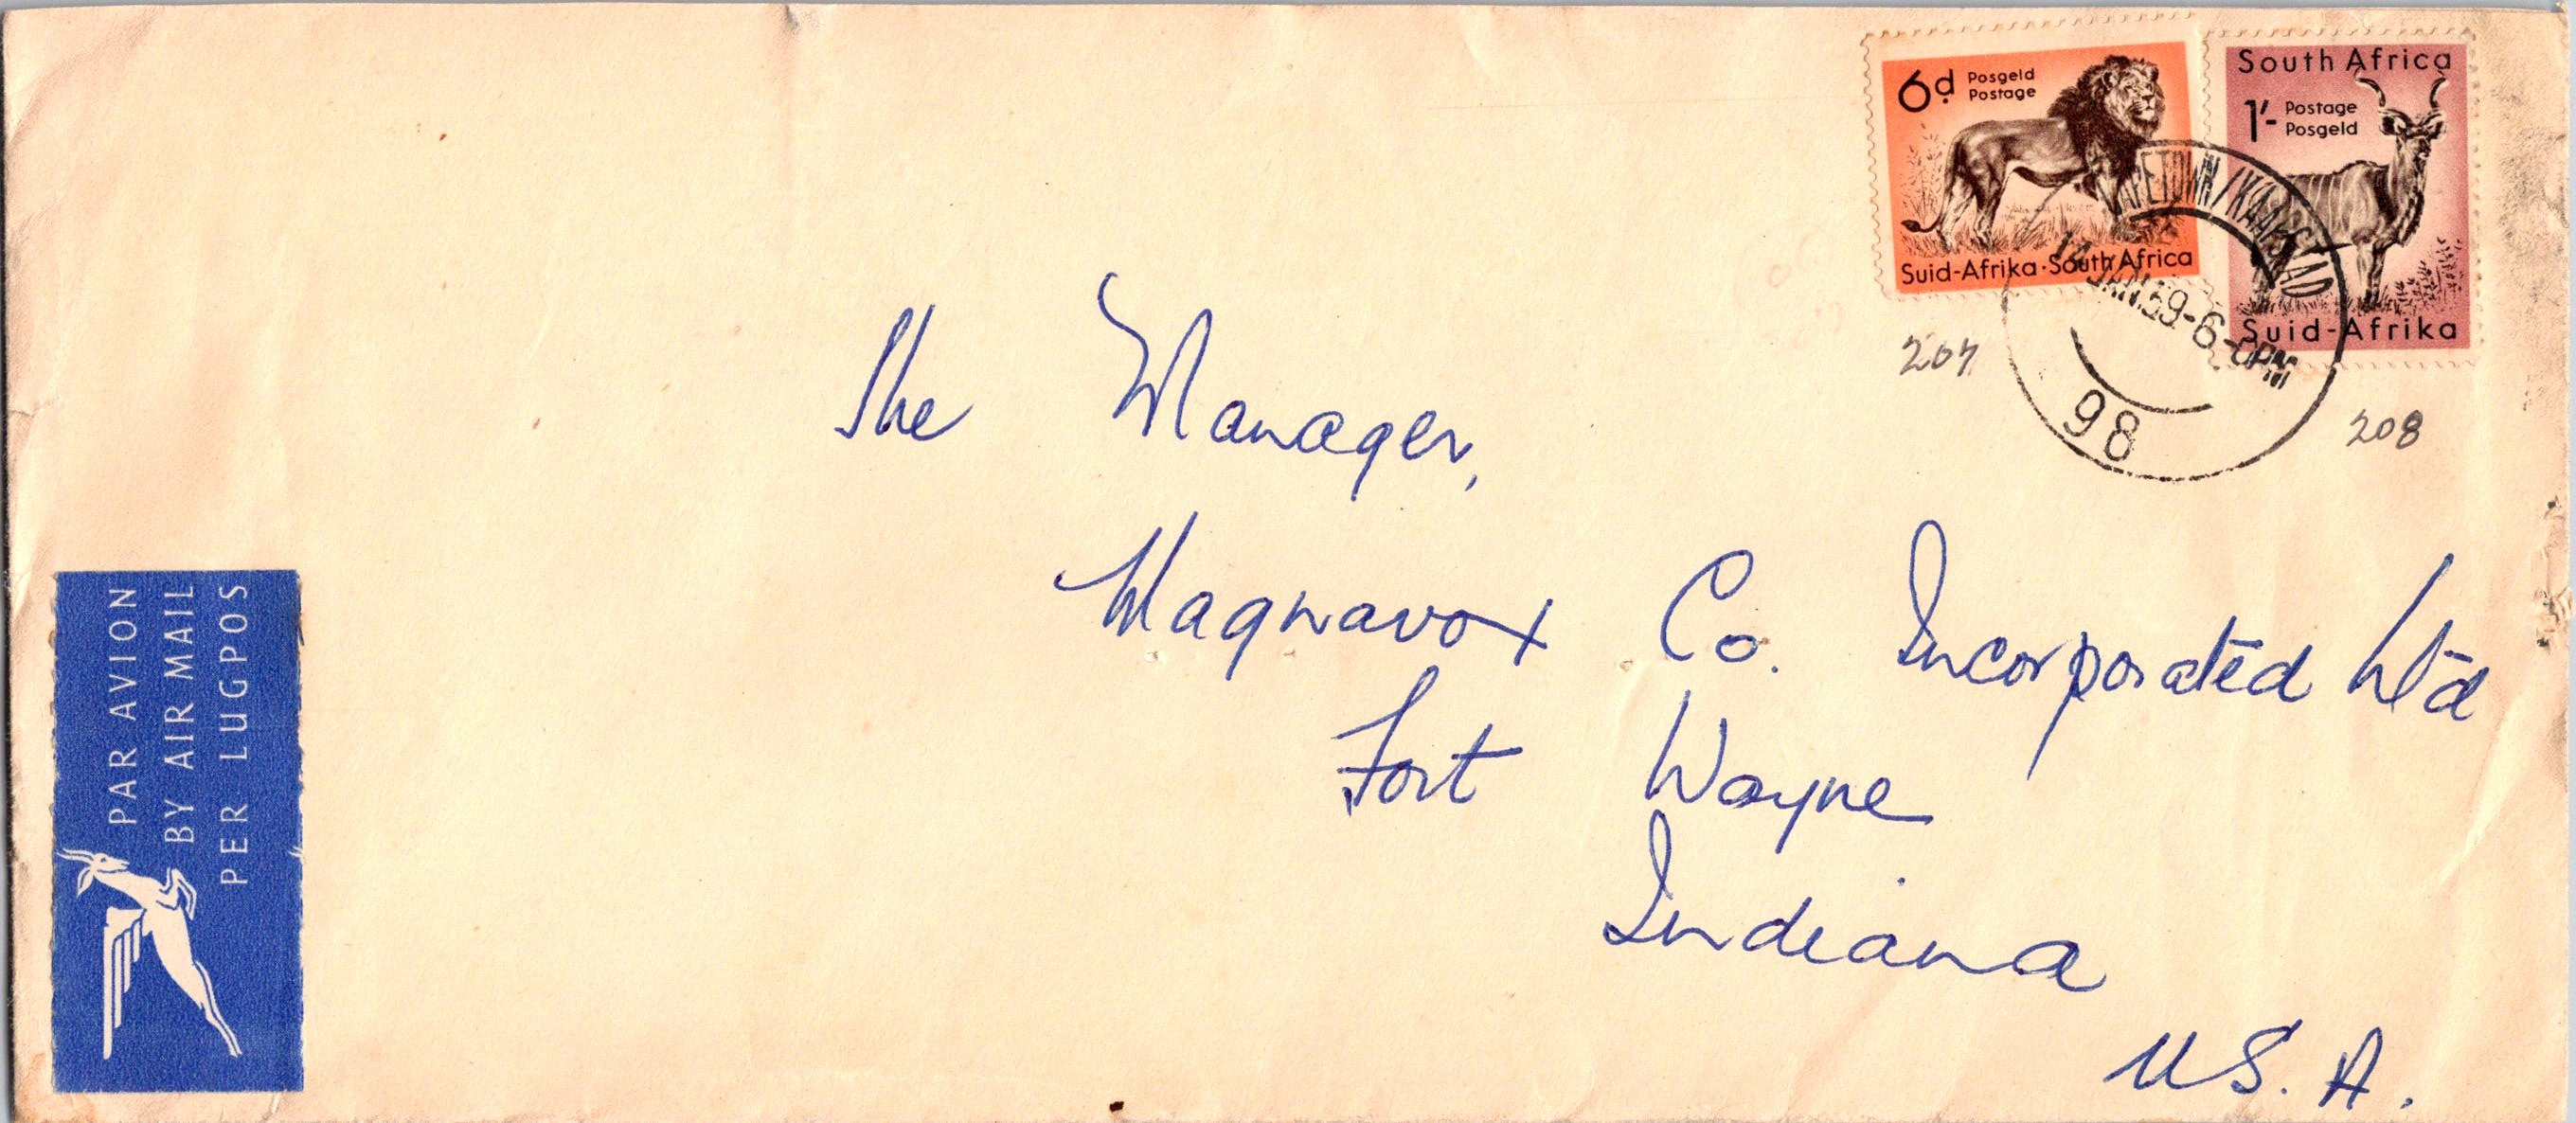 6d Posgeld
Postage
Suid-Afrika·South Africa
South Africa
1/- Postage
Posgeld
Suid-Afrika
CAPETOWN/KAAPSTAD
14 JAN.59-6-0PM
98
207
208
The Manager,
Magnavox Co. Incorporated Ltd
Fort Wayne
Indiana
U.S.A.
PAR AVION
BY AIR MAIL
PER LUGPOS